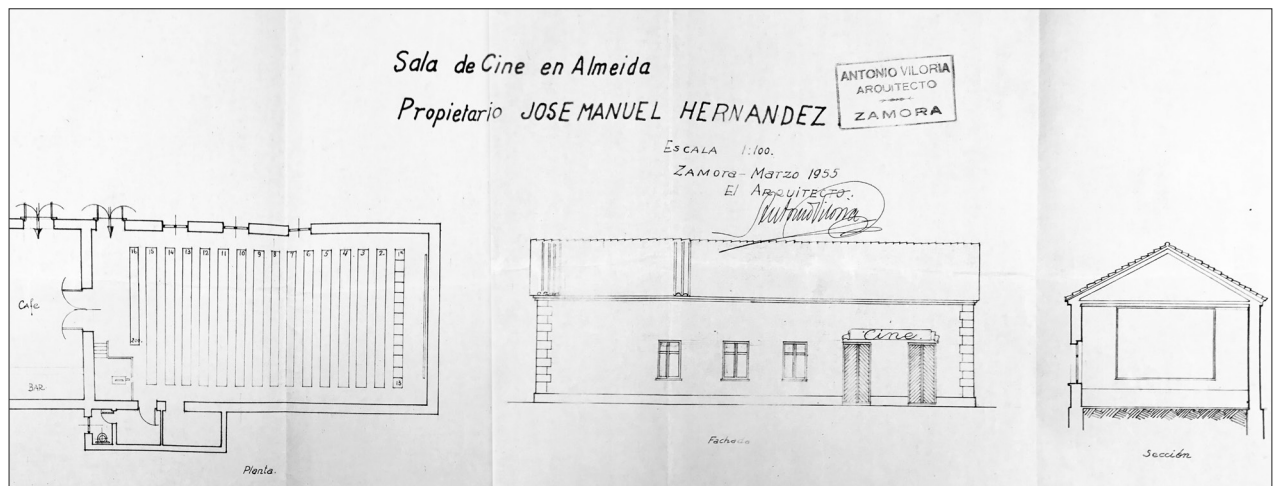 Sala de Cine en Almeida
Propietario JOSE MANUEL HERNANDEZ
ANTONIO VILORIA
ARQUITECTO
ZAMORA
ESCALA 1:100.
ZAMORA - MARZO 1955
El ARQUITECTO.
Antonio Viloria
CAfe
BAR
16 15 14 13 12 11 10 9 8 7 6 5 4 3 2 1ª
13
Planta.
Cine.
Fachada
Sección